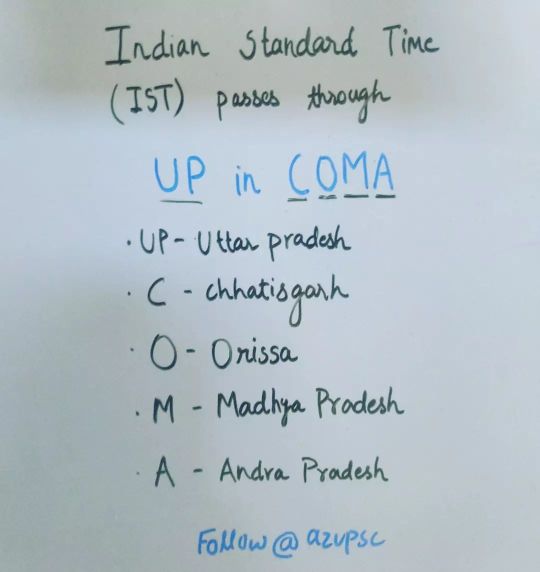 Indian Standard Time
(IST) passes through
UP in COMA
· UP - Uttar pradesh
· C - chhatisgarh
· O - Orissa
· M - Madhya Pradesh
· A - Andra Pradesh
Follow @ azupsc